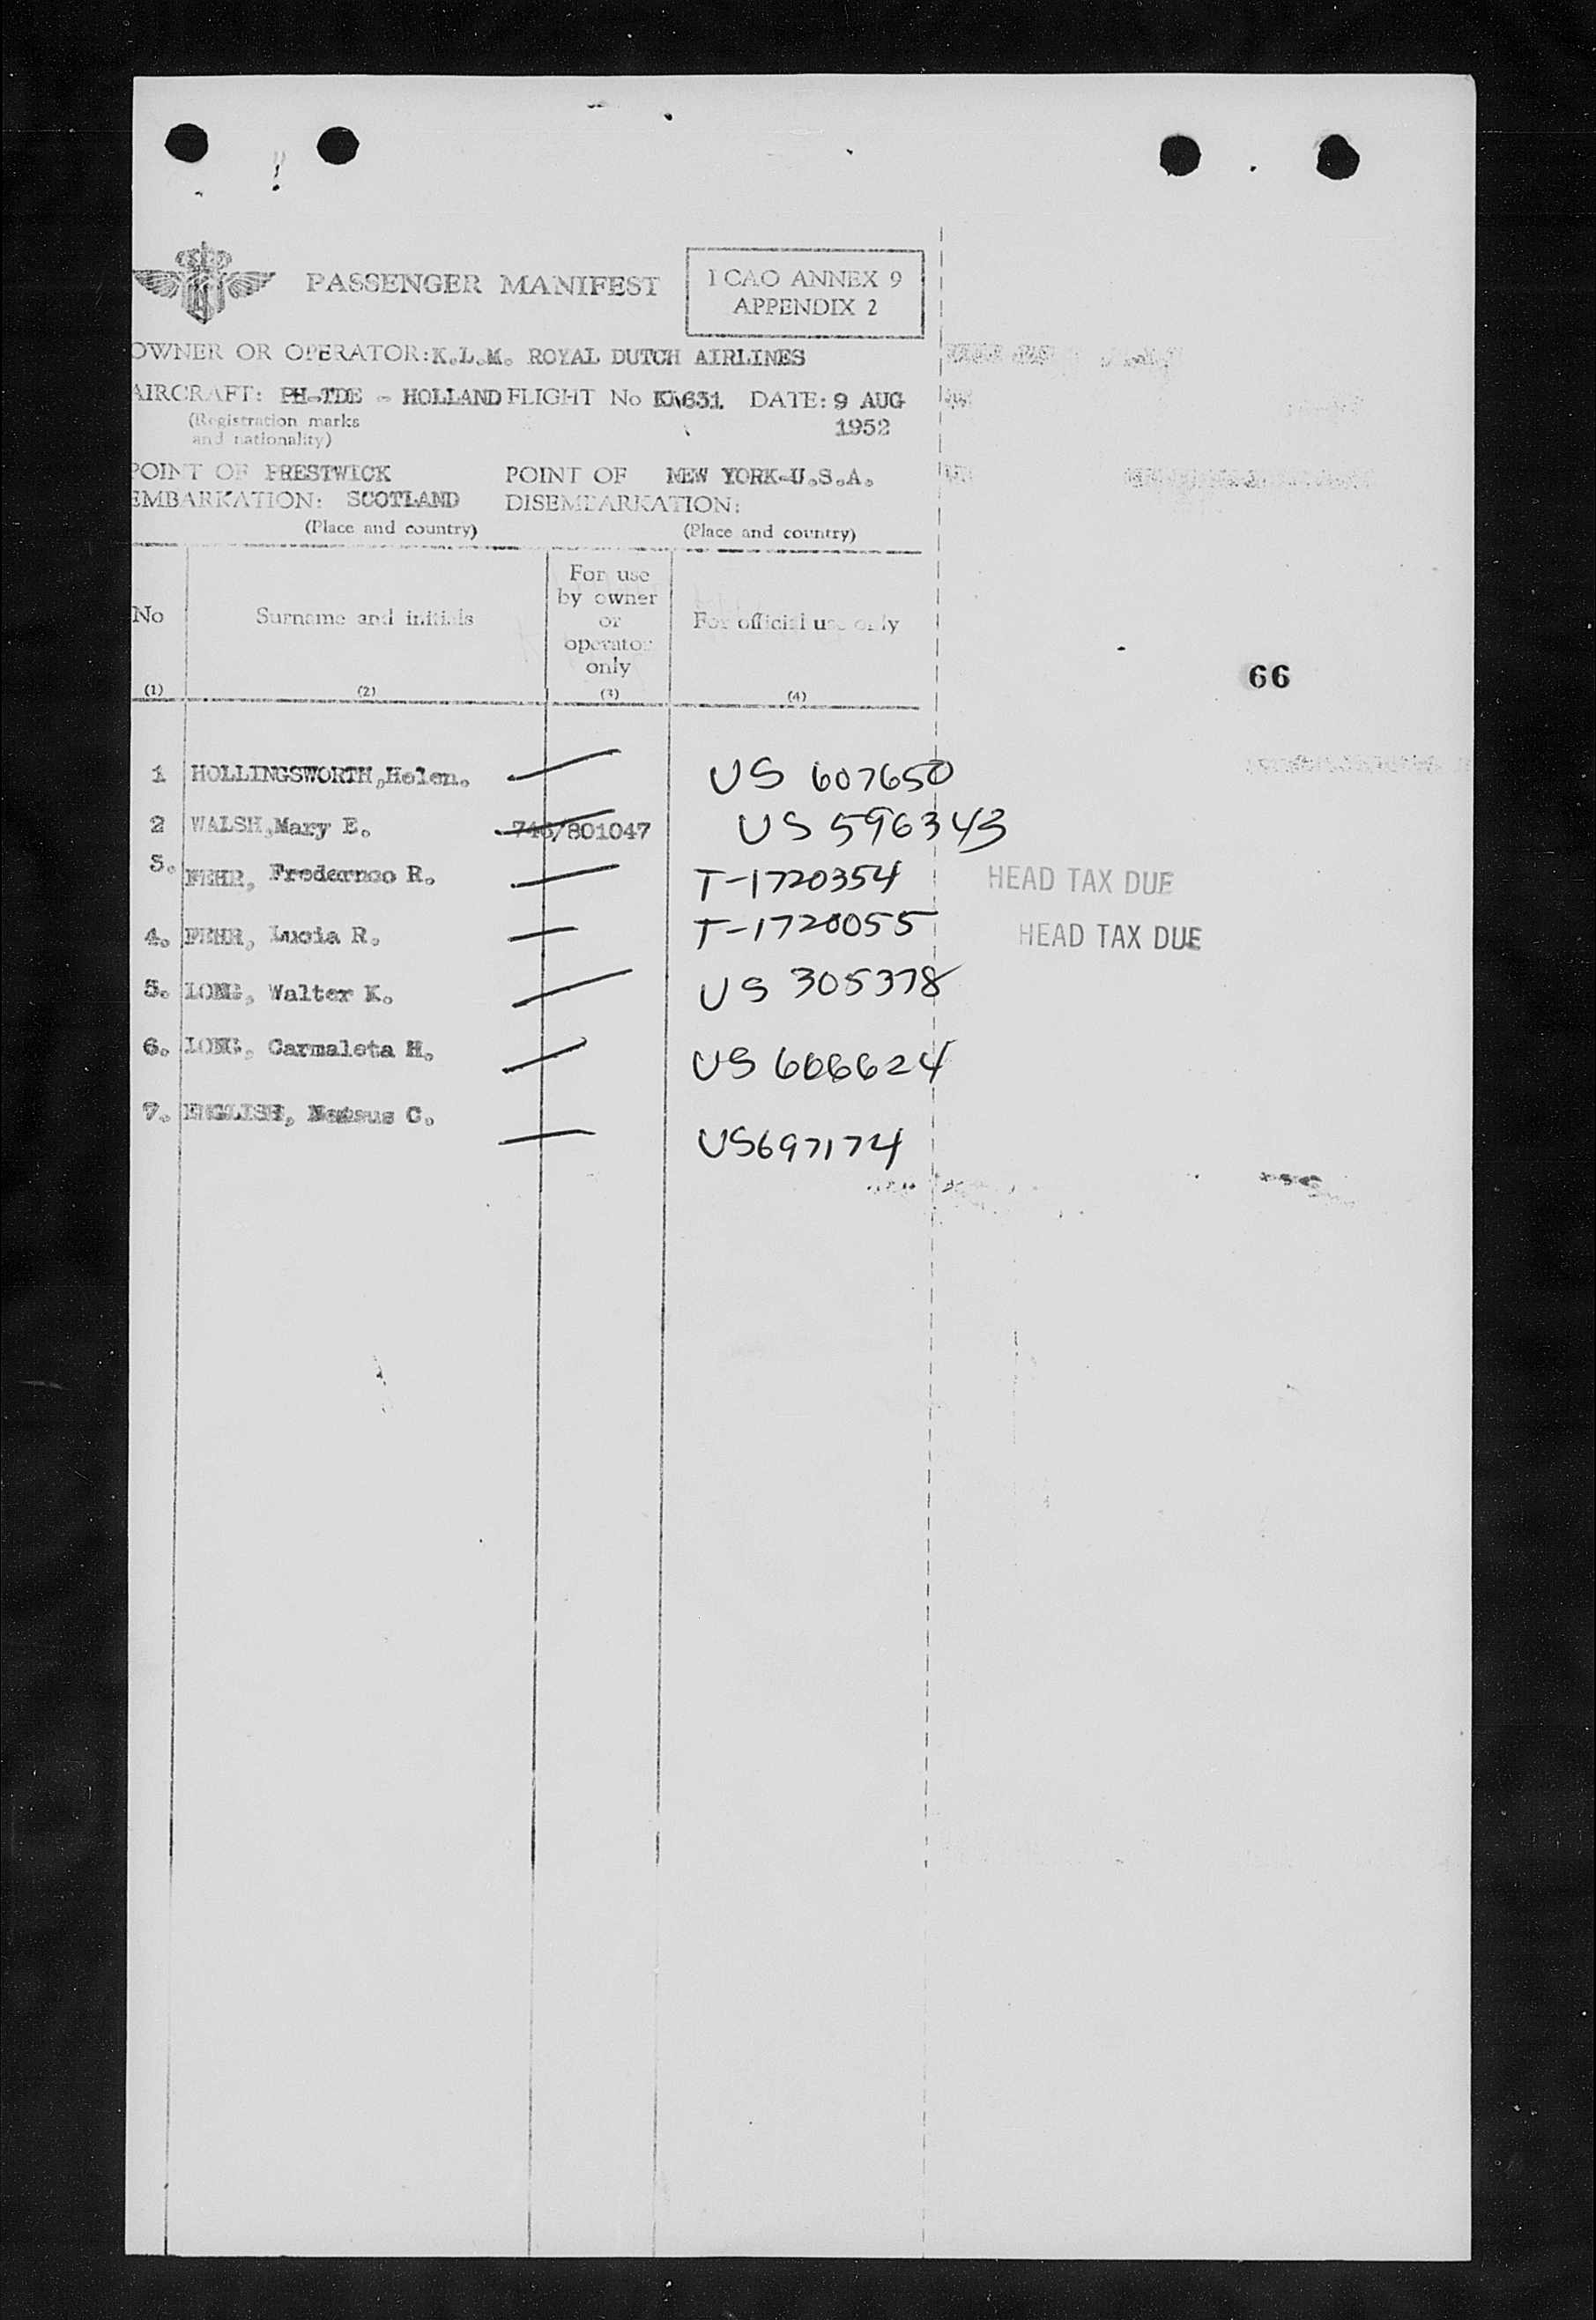 PASSENGER MANIFEST
I CAO ANNEX 9
APPENDIX 2
OWNER OR OPERATOR: K.L.M. ROYAL DUTCH AIRLINES
AIRCRAFT: PH-TDE - HOLLAND FLIGHT No KL631 DATE: 9 AUG
(Registration marks
and nationality)
1952
POINT OF PRESTWICK POINT OF NEW YORK-U.S.A.
EMBARKATION: SCOTLAND DISEMBARKATION:
(Place and country) (Place and country)
No
Surname and initials
For use
by owner
or
operator
only
For official use only
(1) (2) (3) (4)
66
1 HOLLINGSWORTH, Helen. US 607650
2 WALSH, Mary E. 746/801047 US 596343
3. FEHR, R. T-1720354 HEAD TAX DUE
4. FEHR, Lucia R. T-1720055 HEAD TAX DUE
5. LONG, Walter K. US 305378
6. LONG, Carmaleta H. US 606624
7. ENGLISH, C. US697174